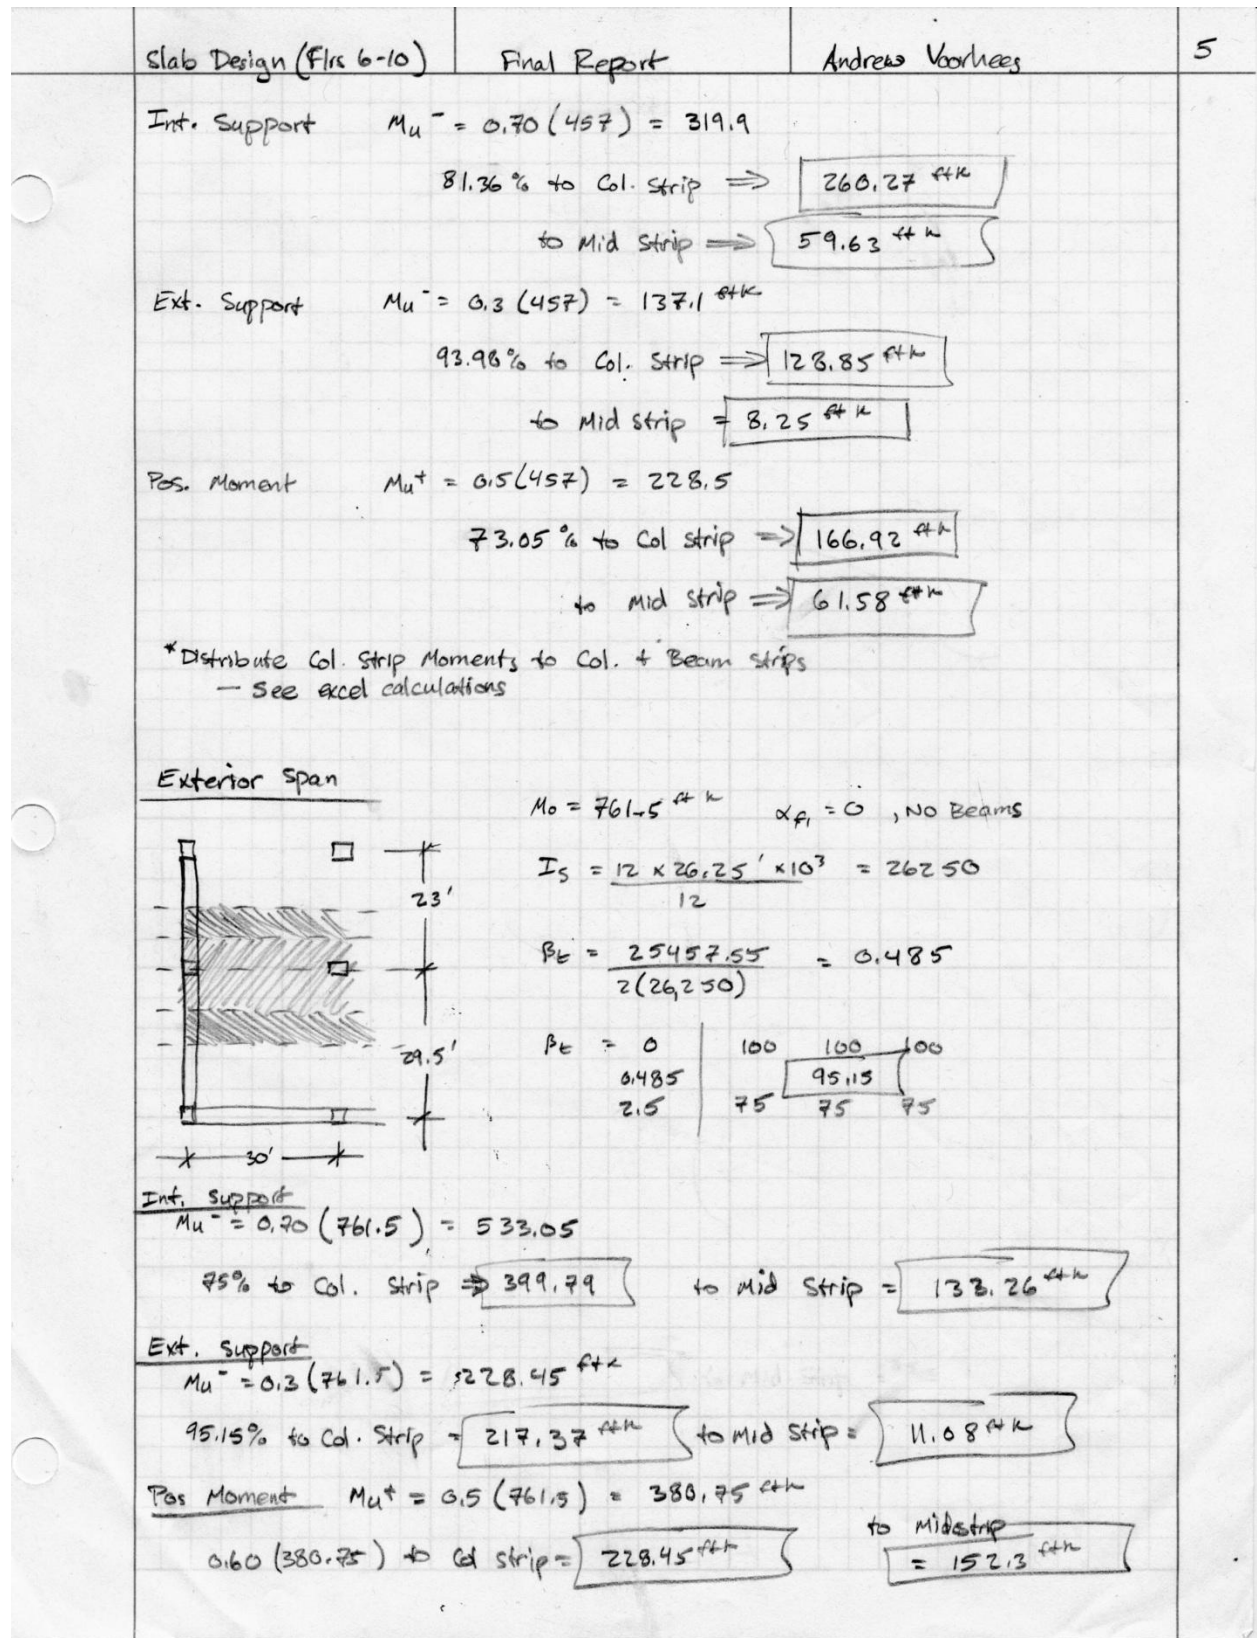 Slab Design (Flrs 6-10) Final Report Andrew Voorhees 5
Int. Support Mu⁻ = 0.70 (457) = 319.9
81.36 % to Col. Strip ⇒ 260.27 ftk
to Mid Strip ⇒ 59.63 ft k
Ext. Support Mu⁻ = 0.3 (457) = 137.1 ftk
93.98% to Col. Strip ⇒ 128.85 ftk
to Mid Strip = 8.25 ft k
Pos. Moment Mu⁺ = 0.5(457) = 228.5
73.05 % to Col Strip ⇒ 166.92 ftk
to Mid Strip ⇒ 61.58 ftk
*Distribute Col. Strip Moments to Col. + Beam Strips
— See excel calculations
Exterior Span
Mo = 761.5 ft k αf₁ = 0 , No Beams
Is = 12 x 26.25' x10³ / 12 = 26250
23'
βt = 25457.55 / 2(26,250) = 0.485
29.5'
βt = 0 100 100 100
0.485 95.15
2.5 75 75 75
30'
Int. Support
Mu⁻ = 0.70 (761.5) = 533.05
75% to Col. Strip ⇒ 399.79 to Mid Strip = 133.26 ftk
Ext. Support
Mu⁻ = 0.3 (761.5) = 228.45 ftk
95.15% to Col. Strip = 217.37 ftk to Mid Strip = 11.08 ftk
Pos Moment Mu⁺ = 0.5 (761.5) = 380.75 ftk
to Midstrip
0.60 (380.75) to Col Strip = 228.45 ftk = 152.3 ftk